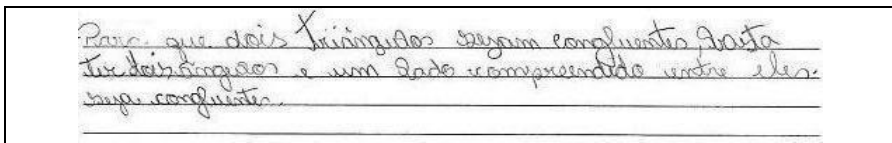 Para que dois triângulos sejam congruentes, basta
ter dois ângulos e um lado compreendido entre eles.
seja congruentes.